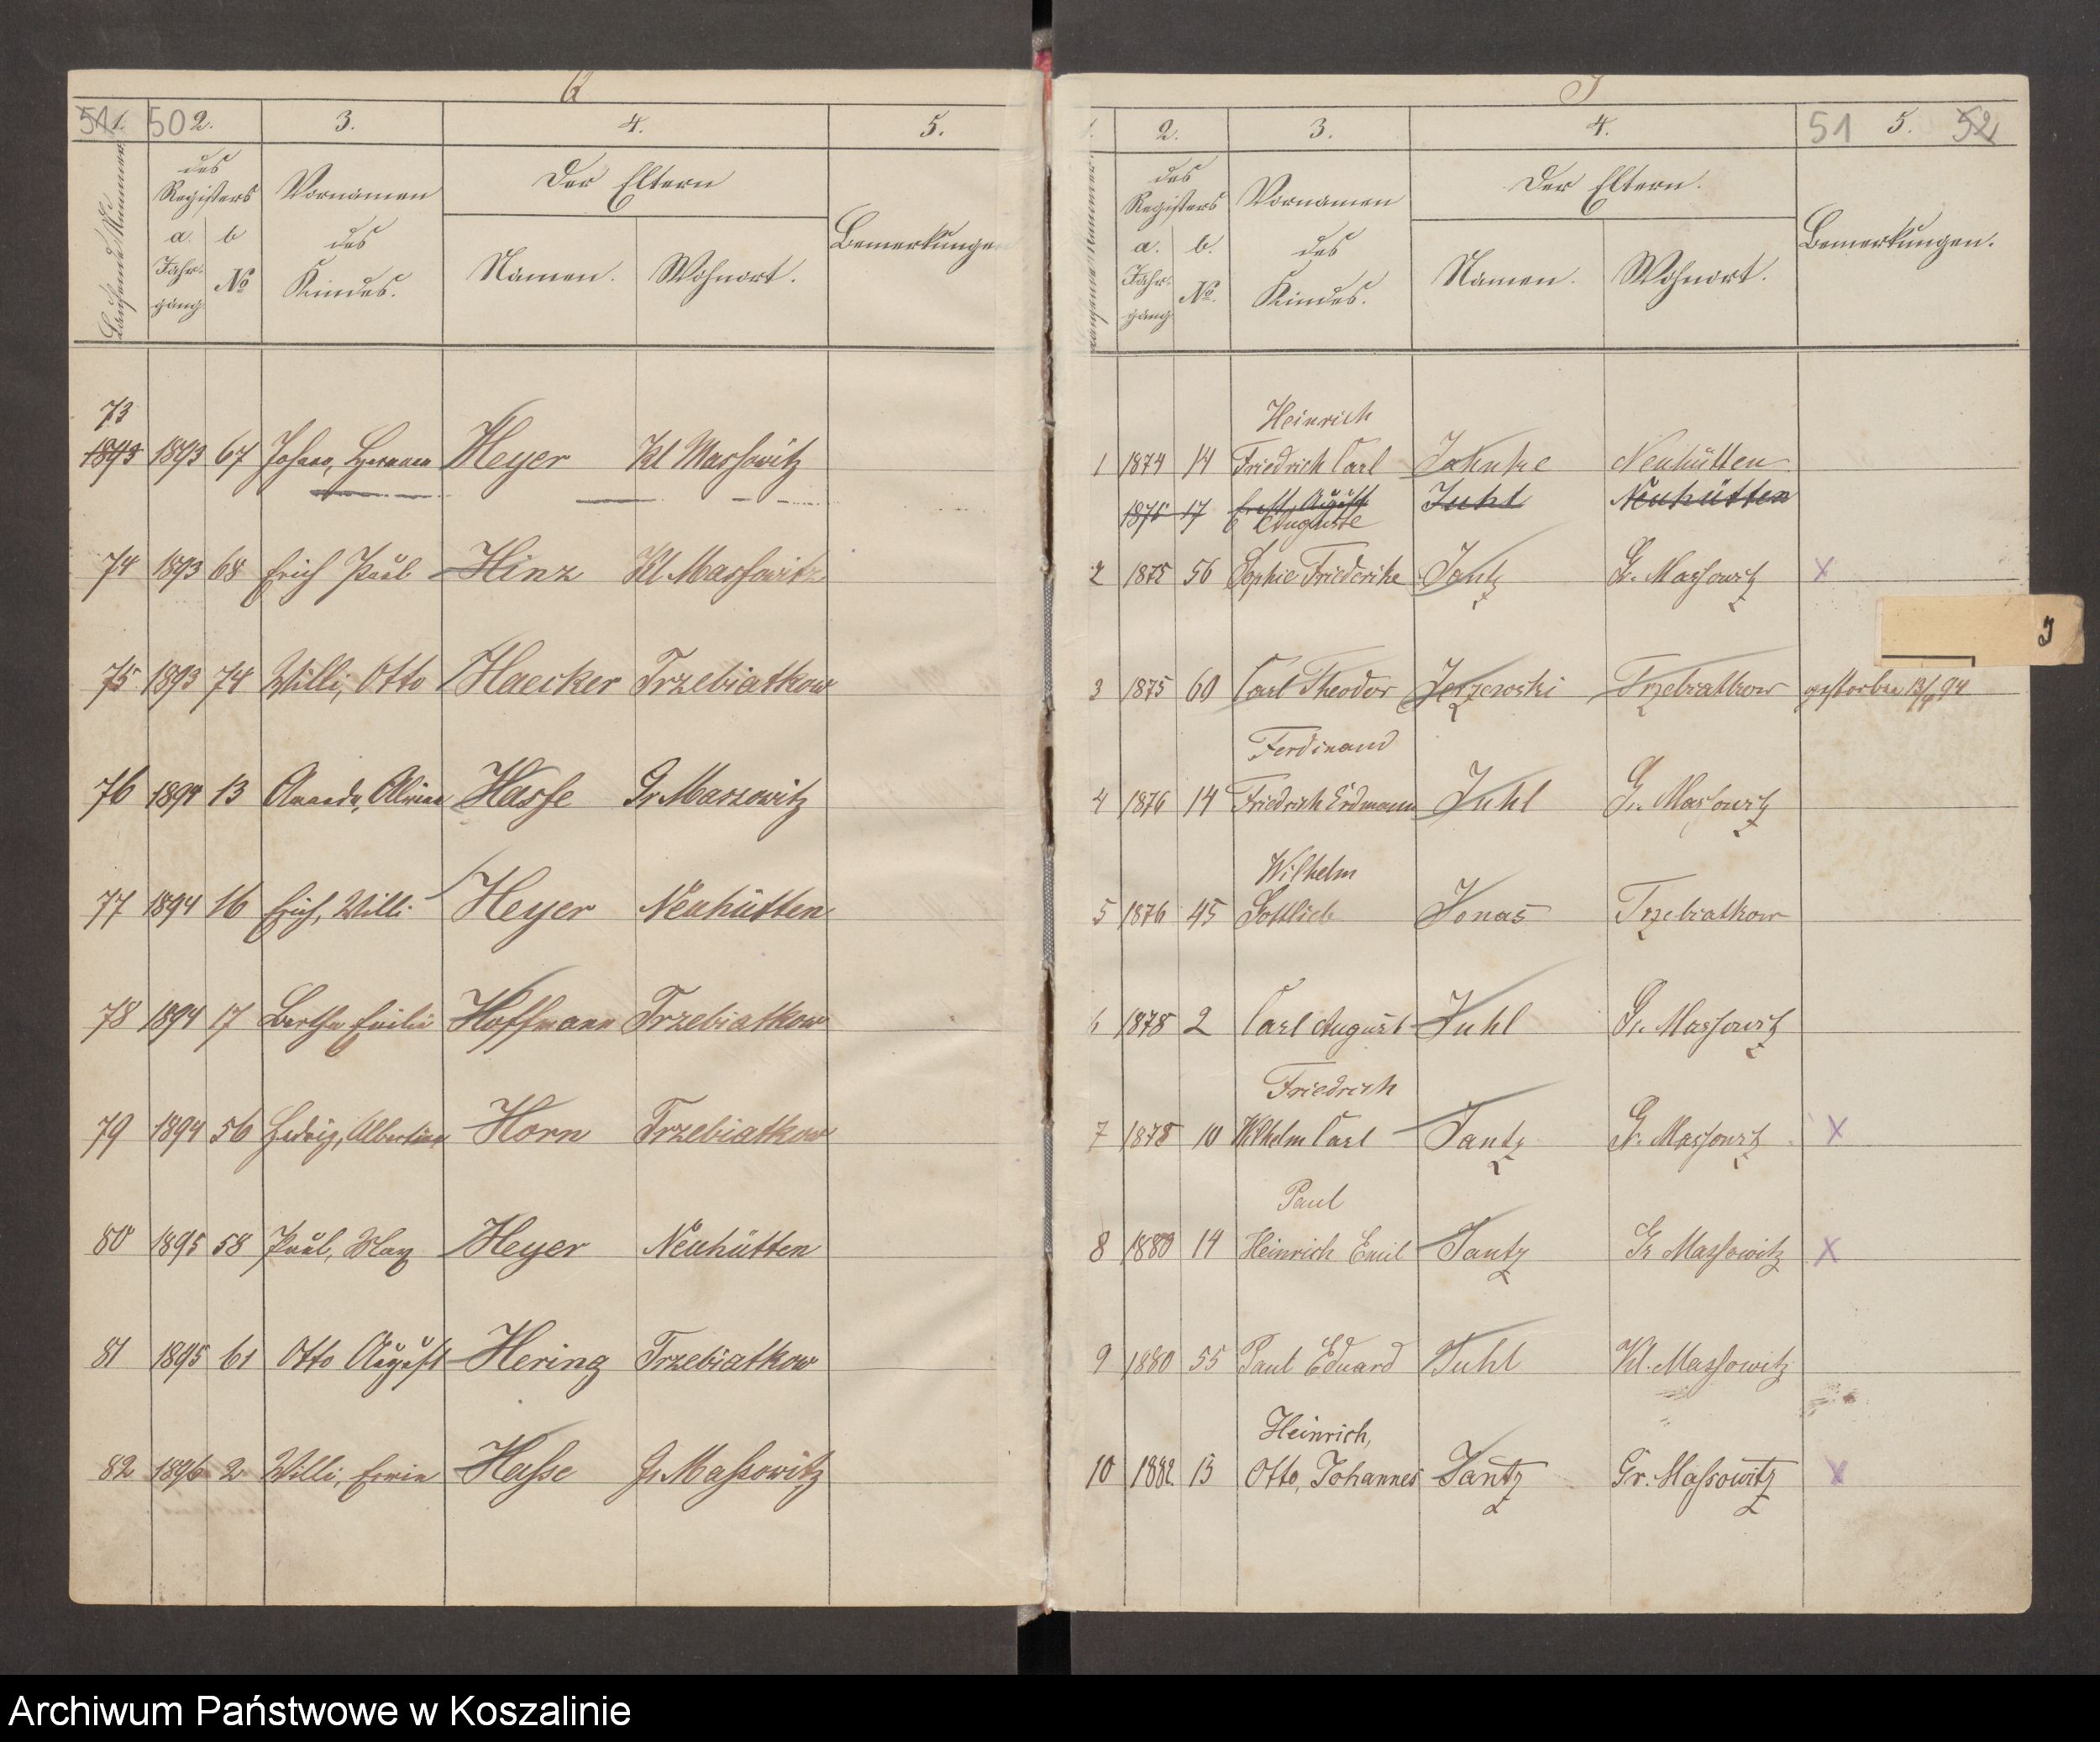 51 1. 50 2. 3. 4. 5.
Laufende Nummer
des Registers Vornamen Der Eltern Bemerkungen
a. b des
Jahrgang № Kindes. Namen. Wohnort.
73
1893 1893 67 Johann, Hermann Heyer Kl Massowitz
74 1893 68 Erich Paul Hinz Kl. Massowitz
75 1893 74 Willi, Otto Haecker Trzebiatkow
76 1894 13 Amanda, Alwine Hasse Gr Massowitz
77 1894 16 Erich, Willi Heyer Neuhütten
78 1894 17 Bertha Emilie Hoffmann Trzebiatkow
79 1894 56 Hedwig, Albertine Horn Trzebiatkow
80 1895 58 Paul, Max Heyer Neuhütten
81 1895 61 Otto August Hering Trzebiatkow
82 1896 2 Willi, Erwin Hasse Gr Massowitz
J
1. 2. 3. 4. 51 5. 52
Laufende Nummer
des Registers Vornamen Der Eltern. Bemerkungen.
a. b. des
Jahrgang №. Kindes. Namen. Wohnort.
Heinrich
1 1874 14 Friedrich Carl Jahnke Neuhütten
1875 17 August Juhl Neuhütten
Auguste
2 1875 56 Sophie Friederike Jantz Gr. Massowitz X
J
3 1875 60 Carl Theodor Jerzewski Trzebiatkow gestorben 94
Ferdinand
4 1876 14 Friedrich Erdmann Juhl Gr. Massowitz
Wilhelm
5 1876 45 Gottlieb Jonas Trzebiatkow
6 1878 2 Carl August Juhl Gr. Massowitz
Friedrich
7 1878 10 Wilhelm Carl Jantz Gr. Massowitz X
Paul
8 1880 14 Heinrich Emil Jantz Gr Massowitz X
9 1880 55 Paul Eduard Juhl Kl. Massowitz
Heinrich,
10 1882. 13 Otto, Johannes Jantz Gr. Massowitz X
Archiwum Państwowe w Koszalinie